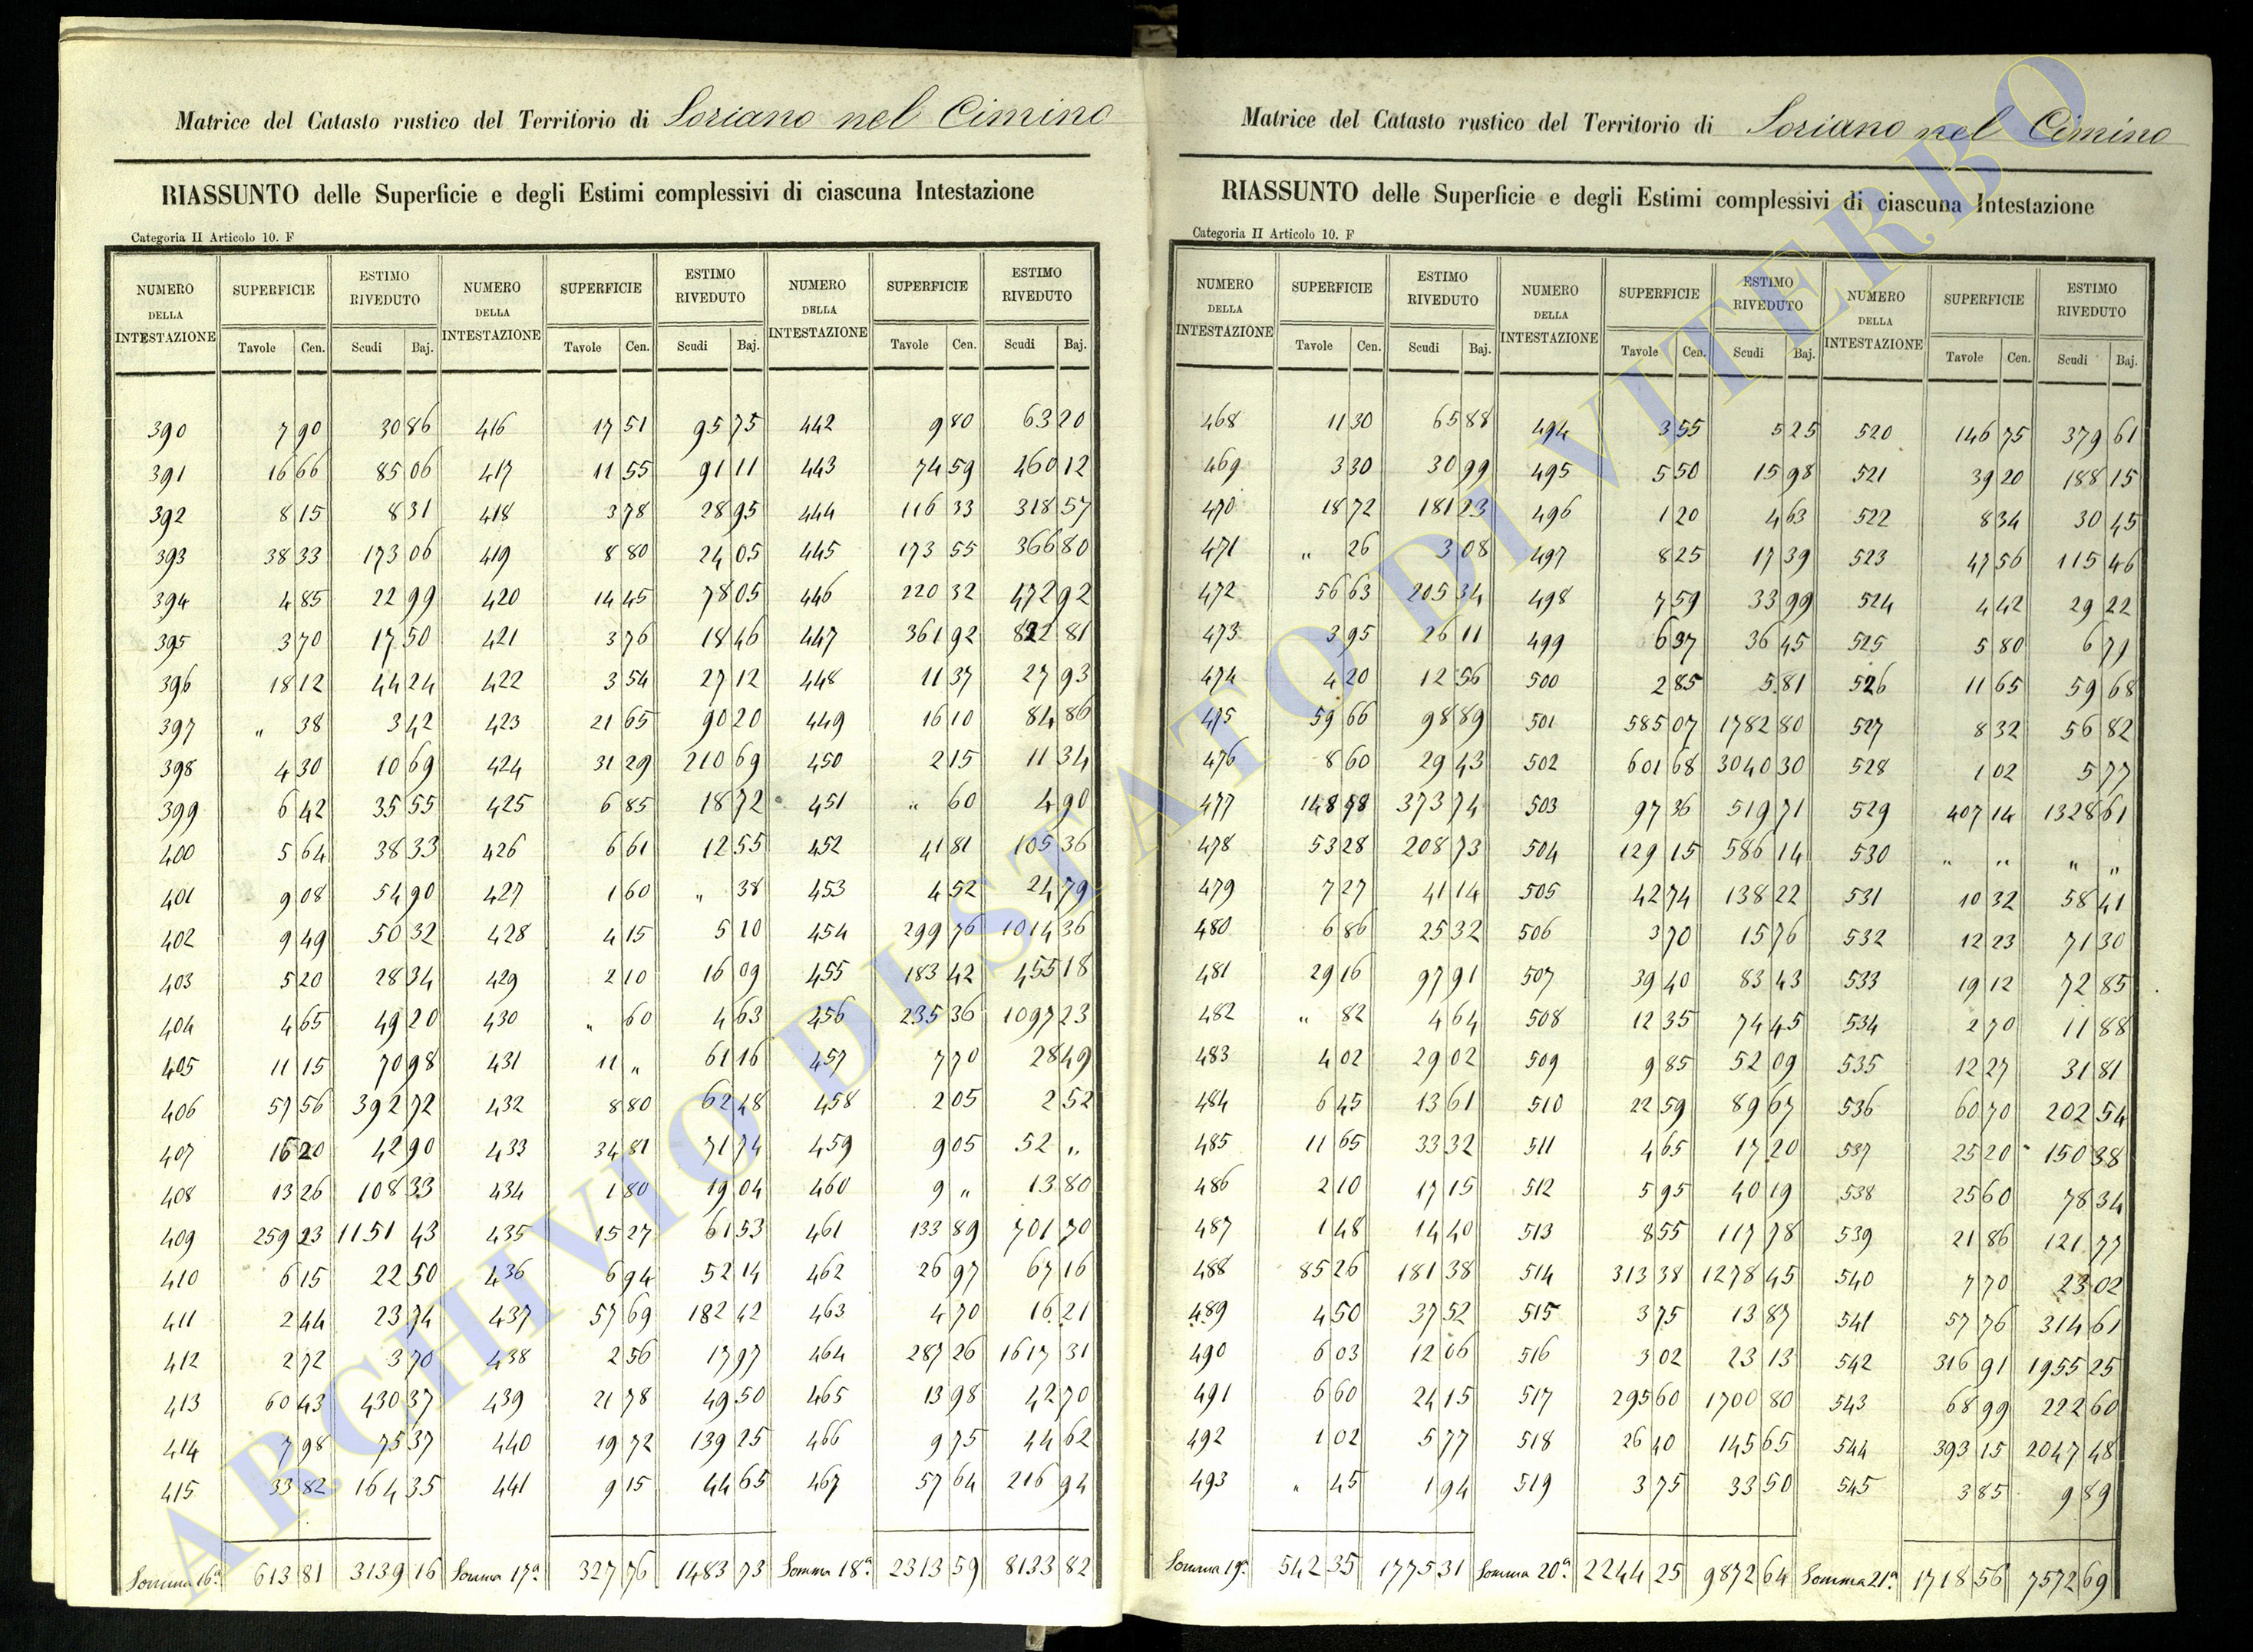 Matrice del Catasto rustico del Territorio di Soriano nel Cimino
RIASSUNTO delle Superficie e degli Estimi complessivi di ciascuna Intestazione
Categoria II Articolo 10. F
NUMERO DELLA INTESTAZIONE | SUPERFICIE | ESTIMO RIVEDUTO | NUMERO DELLA INTESTAZIONE | SUPERFICIE | ESTIMO RIVEDUTO | NUMERO DELLA INTESTAZIONE | SUPERFICIE | ESTIMO RIVEDUTO
Tavole | Cen. | Scudi | Baj. | Tavole | Cen. | Scudi | Baj. | Tavole | Cen. | Scudi | Baj.
390 7 90 30 86 416 17 51 95 75 442 9 80 63 20
391 16 66 85 06 417 11 55 91 11 443 74 59 460 12
392 8 15 8 31 418 3 78 28 95 444 116 33 318 57
393 38 33 173 06 419 8 80 24 05 445 173 55 366 80
394 4 85 22 99 420 14 45 78 05 446 220 32 472 92
395 3 70 17 50 421 3 76 18 46 447 361 92 822 81
396 18 12 44 24 422 3 54 27 12 448 11 37 27 93
397 " 38 3 42 423 21 65 90 20 449 16 10 84 86
398 4 30 10 69 424 31 29 210 69 450 2 15 11 34
399 6 42 35 55 425 6 85 18 72 451 " 60 4 90
400 5 64 38 33 426 6 61 12 55 452 41 81 105 36
401 9 08 54 90 427 1 60 " 38 453 4 52 24 79
402 9 49 50 32 428 4 15 5 10 454 299 76 1014 36
403 5 20 28 34 429 2 10 16 09 455 183 42 455 18
404 4 65 49 20 430 " 60 4 63 456 235 36 1097 23
405 11 15 70 98 431 11 " 61 16 457 7 70 28 49
406 57 56 392 72 432 8 80 62 48 458 2 05 2 52
407 16 20 42 90 433 34 81 71 74 459 9 05 52 "
408 13 26 108 33 434 1 80 19 04 460 9 " 13 80
409 259 23 1151 43 435 15 27 61 53 461 133 89 701 70
410 6 15 22 50 436 6 94 52 14 462 26 97 67 16
411 2 44 23 74 437 57 69 182 42 463 4 70 16 21
412 2 72 3 70 438 2 56 17 97 464 287 26 1617 31
413 60 43 430 37 439 21 78 49 50 465 13 98 42 70
414 7 98 75 37 440 19 72 139 25 466 9 75 44 62
415 33 82 164 35 441 9 15 44 65 467 57 64 216 94
Somma 16ª 613 81 3139 16 Somma 17ª 327 76 1483 73 Somma 18ª 2313 59 8133 82
Matrice del Catasto rustico del Territorio di Soriano nel Cimino
RIASSUNTO delle Superficie e degli Estimi complessivi di ciascuna Intestazione
Categoria II Articolo 10. F
NUMERO DELLA INTESTAZIONE | SUPERFICIE | ESTIMO RIVEDUTO | NUMERO DELLA INTESTAZIONE | SUPERFICIE | ESTIMO RIVEDUTO | NUMERO DELLA INTESTAZIONE | SUPERFICIE | ESTIMO RIVEDUTO
Tavole | Cen. | Scudi | Baj. | Tavole | Cen. | Scudi | Baj. | Tavole | Cen. | Scudi | Baj.
468 11 30 65 88 494 3 55 5 25 520 146 75 379 61
469 3 30 30 99 495 5 50 15 98 521 39 20 188 15
470 18 72 181 23 496 1 20 4 63 522 8 34 30 45
471 " 26 3 08 497 8 25 17 39 523 47 56 115 46
472 56 63 205 34 498 7 59 33 99 524 4 42 29 22
473 3 95 26 11 499 6 37 36 45 525 5 80 6 79
474 4 20 12 56 500 2 85 5 81 526 11 65 59 68
475 59 66 98 89 501 585 07 1782 80 527 8 32 56 82
476 8 60 29 43 502 601 68 3040 30 528 1 02 5 77
477 148 98 373 74 503 97 36 519 71 529 407 14 1328 61
478 53 28 208 73 504 129 15 586 14 530 " " " "
479 7 27 41 14 505 42 74 138 22 531 10 32 58 41
480 6 86 25 32 506 3 70 15 76 532 12 23 71 30
481 29 16 97 91 507 39 40 83 43 533 19 12 72 85
482 " 82 4 64 508 12 35 74 45 534 2 70 11 88
483 4 02 29 02 509 9 85 52 09 535 12 27 31 81
484 6 45 13 61 510 22 59 89 67 536 60 70 202 54
485 11 65 33 32 511 4 65 17 20 537 25 20 150 38
486 2 10 17 15 512 5 95 40 19 538 25 60 78 34
487 1 48 14 40 513 8 55 117 78 539 21 86 121 77
488 85 26 181 38 514 313 38 1278 45 540 7 70 23 02
489 4 50 37 52 515 3 75 13 87 541 57 76 314 61
490 6 03 12 06 516 3 02 23 13 542 316 91 1955 25
491 6 60 24 15 517 295 60 1700 80 543 68 99 222 60
492 1 02 5 77 518 26 40 145 65 544 393 15 2047 48
493 " 45 1 94 519 3 75 33 50 545 3 85 9 89
Somma 19ª 542 35 1775 31 Somma 20ª 2244 25 9872 64 Somma 21ª 1718 56 7572 69
ARCHIVIO DI STATO DI VITERBO